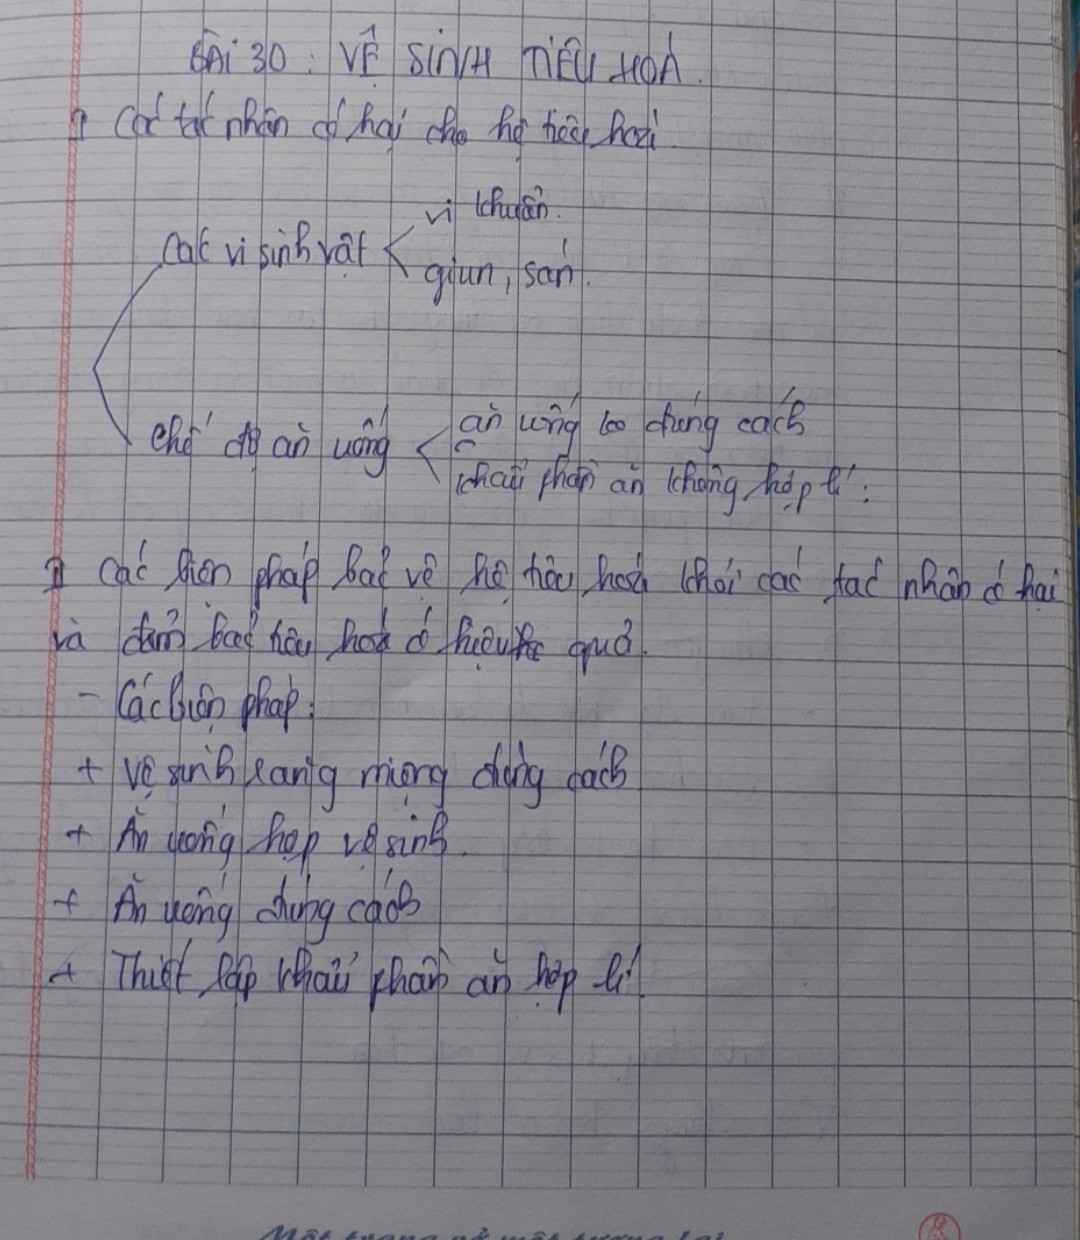 BÀI 30: VỆ SINH TIÊU HOÁ.
I Các tác nhân có hại cho hệ tiêu hoá
vi khuẩn.
Các vi sinh vật
giun, sán.
ăn uống ko đúng cách
chế độ ăn uống
khẩu phần ăn không hợp lí.
II Các biện pháp bảo vệ hệ tiêu hoá khỏi các tác nhân có hại
và đảm bảo tiêu hoá có hiệu quả.
- Các biện pháp:
+ Vệ sinh răng miệng đúng cách
+ Ăn uống hợp vệ sinh.
+ Ăn uống đúng cách
+ Thiết lập khẩu phần ăn hợp lí.